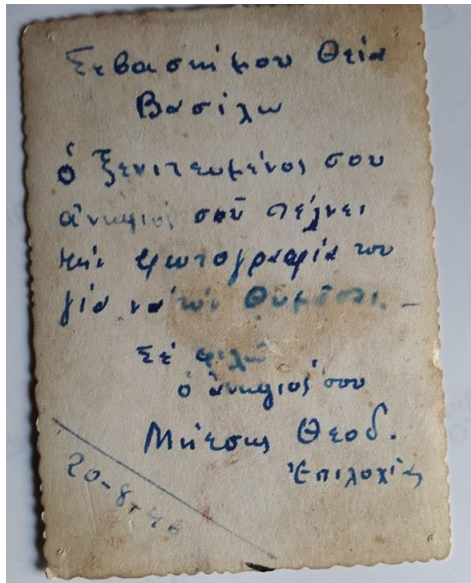 Σεβασκήμου Θεία
Βασίλω
ὁ ξενιτευμένος σου
ἀνηψιός σοῦ στέλνει
τήν φωτογραφία του
γία νά τόν θυμᾶσαι. –
Σέ φιλῶ
ὁ ἀνηψιός σου
Θεοδ.
Ἐπιλοχίας
20-8-46